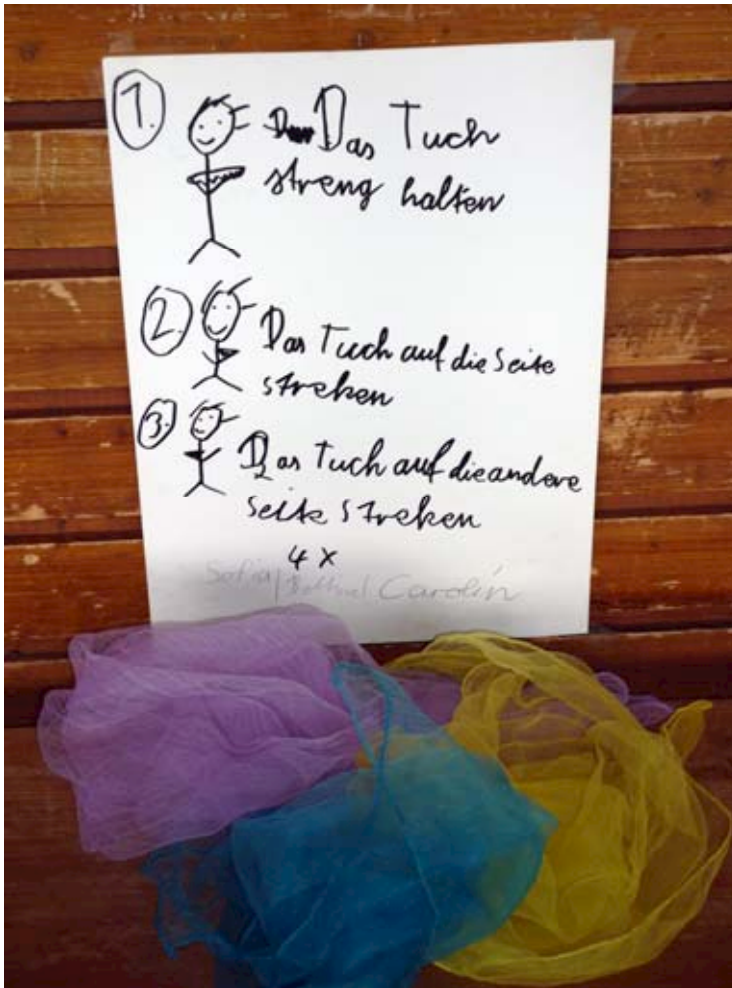 1. Das Tuch
streng halten
2. Das Tuch auf die Seite
streken
3. Das Tuch auf die andere
seite streken
4 x
Sofia Carolin